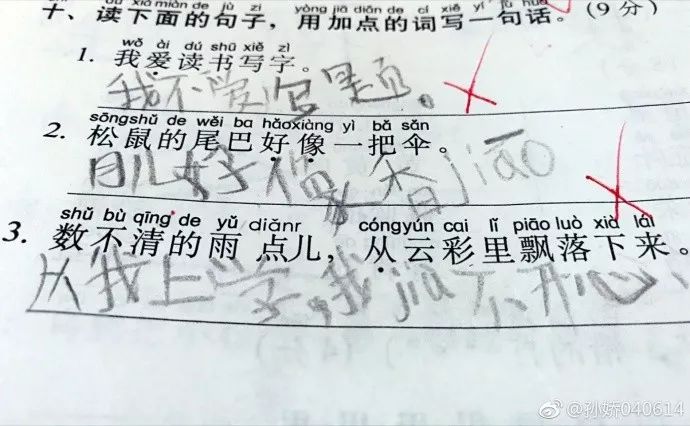 xià miàn de jù zi yòng jiā diǎn de cí xiě yí jù huà
十、读下面的句子，用加点的词写一句话。(9分)
wǒ ài dú shū xiě zì
1. 我爱读书写字。
我不爱写题。
sōngshǔ de wěi ba hǎoxiàng yì bǎ sǎn
2. 松鼠的尾巴好像一把伞。
月儿好像香jiāo
shǔ bù qīng de yǔ diǎnr cóngyún cai lǐ piāo luò xià lái
3. 数不清的雨点儿，从云彩里飘落下来。
从我上学,我jiù不开心
@孙娇040614